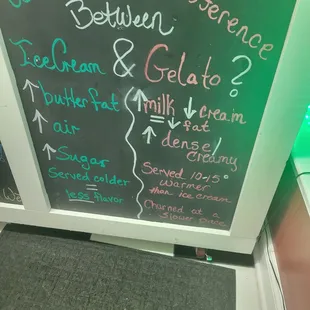 Difference
Between
Ice Cream & Gelato?
↑ butterfat
↑ air
↑ Sugar
Served colder
= less flavor
↑ milk ↓ cream
= ↓ fat
↑ dense/
creamy
Served 10-15°
warmer
than ice cream
Churned at a
slower pace